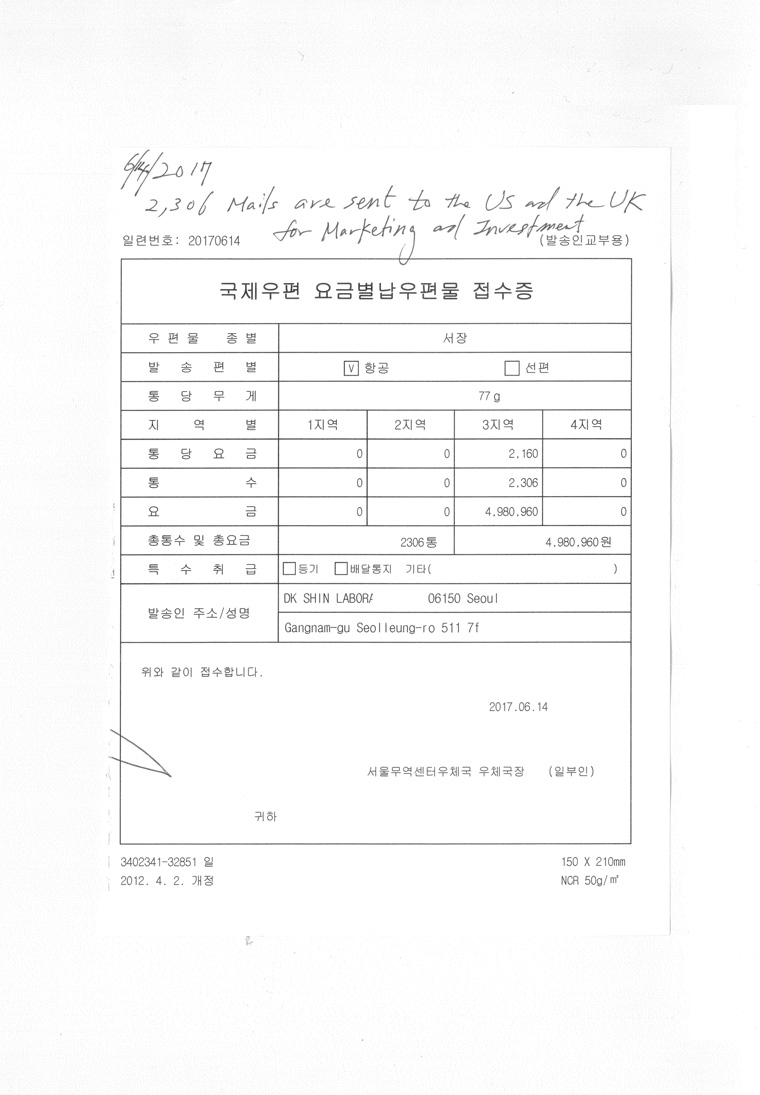 6/14/2017
2,306 Mails are sent to the US and the UK
for Marketing and Investment
일련번호: 20170614 (발송인교부용)
국제우편 요금별납우편물 접수증
우편물 종별 서장
발송편별 V 항공 선편
통당무게 77g
지역별 1지역 2지역 3지역 4지역
통당요금 0 0 2,160 0
통수 0 0 2,306 0
요금 0 0 4,980,960 0
총통수 및 총요금 2306통 4,980,960원
특수취급 등기 배달통지 기타( )
발송인 주소/성명 DK SHIN LABORA 06150 Seoul
Gangnam-gu Seolleung-ro 511 7f
위와 같이 접수합니다.
2017.06.14
서울무역센터우체국 우체국장 (일부인)
귀하
3402341-32851 일 150 X 210mm
2012. 4. 2. 개정 NCR 50g/㎡